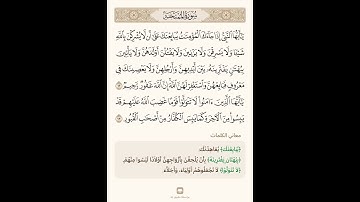 سُورَةُ المُمْتَحنَة
يَٰٓأَيُّهَا ٱلنَّبِيُّ إِذَا جَآءَكَ ٱلْمُؤْمِنَٰتُ يُبَايِعْنَكَ عَلَىٰٓ أَن لَّا يُشْرِكْنَ بِٱللَّهِ
شَيْـًٔا وَلَا يَسْرِقْنَ وَلَا يَزْنِينَ وَلَا يَقْتُلْنَ أَوْلَٰدَهُنَّ وَلَا يَأْتِينَ
بِبُهْتَٰنٍ يَفْتَرِينَهُۥ بَيْنَ أَيْدِيهِنَّ وَأَرْجُلِهِنَّ وَلَا يَعْصِينَكَ فِى
مَعْرُوفٍ فَبَايِعْهُنَّ وَٱسْتَغْفِرْ لَهُنَّ ٱللَّهَ إِنَّ ٱللَّهَ غَفُورٌ رَّحِيمٌ ١٢
يَٰٓأَيُّهَا ٱلَّذِينَ ءَامَنُوا۟ لَا تَتَوَلَّوْا۟ قَوْمًا غَضِبَ ٱللَّهُ عَلَيْهِمْ قَدْ
يَئِسُوا۟ مِنَ ٱلْءَاخِرَةِ كَمَا يَئِسَ ٱلْكُفَّارُ مِنْ أَصْحَٰبِ ٱلْقُبُورِ ١٣
معاني الكلمات
﴿يُبَايِعْنَكَ﴾ يُعَاهِدْنَكَ.
﴿بِبُهْتَانٍ يَفْتَرِينَهُ﴾ بِأَنْ يُلْحِقْنَ بِأَزْوَاجِهِنَّ أَوْلَادًا لَيْسُوا مِنْهُمْ.
﴿لَا تَتَوَلَّوْا﴾ لَا تَجْعَلُوهُمْ أَوْلِيَاءَ، وَأَخِلَّاءَ.